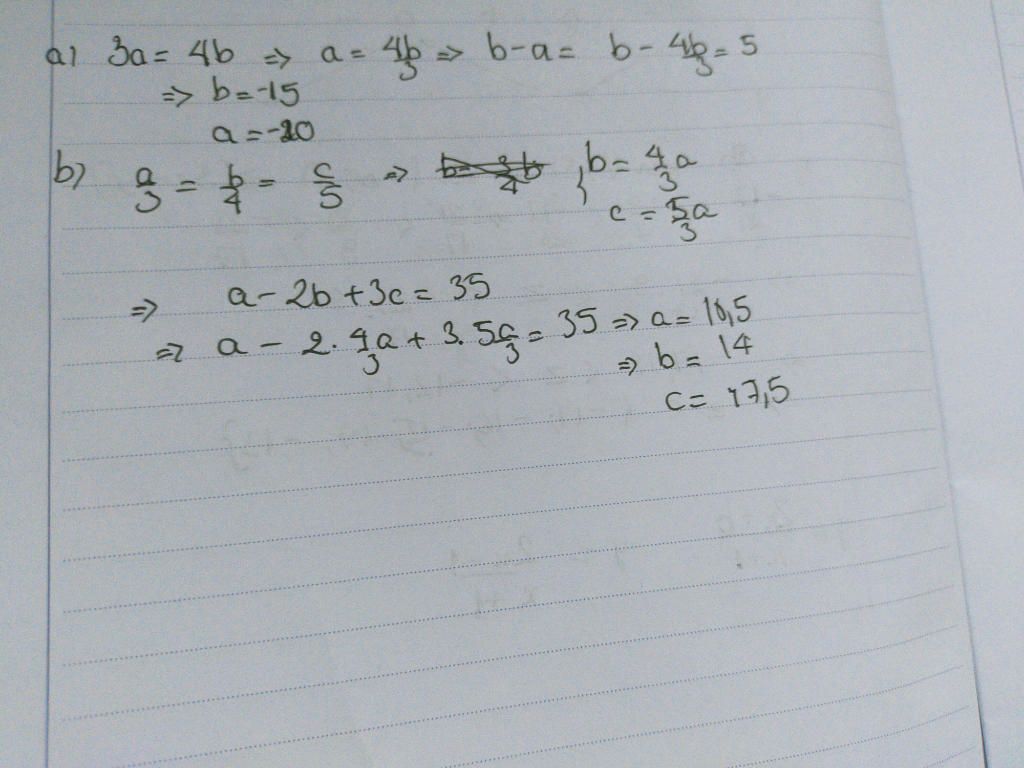 a) 3a = 4b => a = 4b/3 => b - a = b - 4b/3 = 5
=> b = -15
a = -20
b) a/3 = b/4 = c/5 => { b = 4/3 a
c = 5a/3
=> a - 2b + 3c = 35
=> a - 2. 4/3 a + 3. 5a/3 = 35 => a = 10,5
=> b = 14
c = 17,5